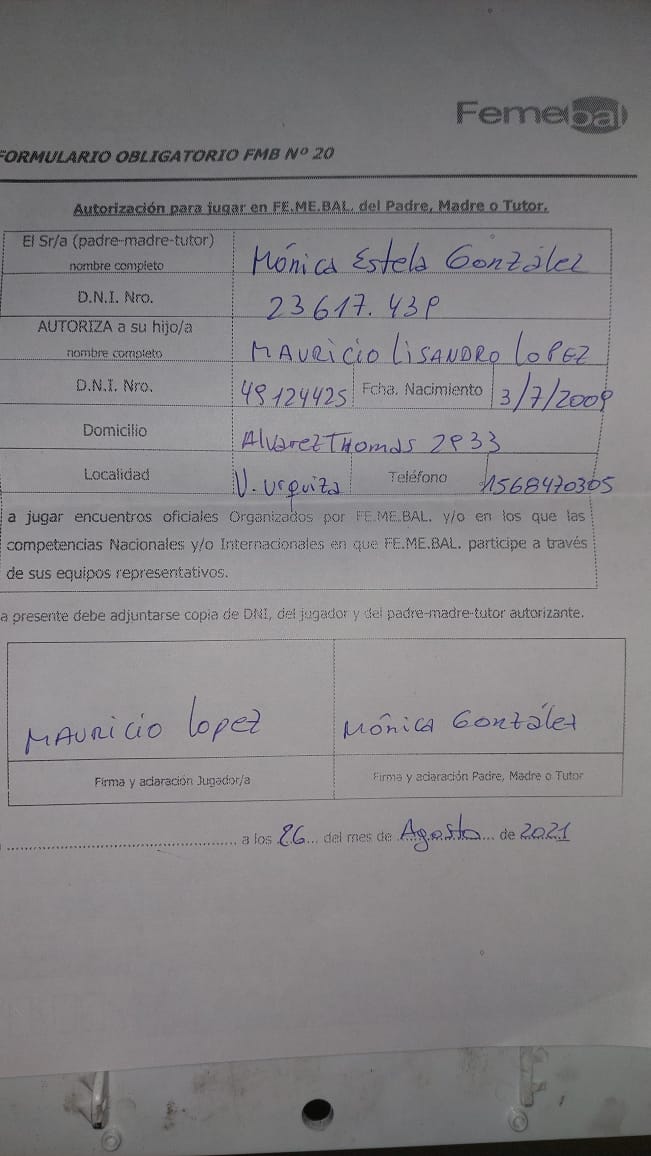 Femebal
FORMULARIO OBLIGATORIO FMB Nº 20
Autorización para jugar en FE.ME.BAL. del Padre, Madre o Tutor.
El Sr/a (padre-madre-tutor)
nombre completo
Mónica Estela González
D.N.I. Nro.
23617.439
AUTORIZA a su hijo/a
nombre completo
MAURICIO LISANDRO LOPEZ
D.N.I. Nro.
49124425
Fcha. Nacimiento
3/7/2009
Domicilio
Alvarez Thomas 2933
Localidad
V. Urquiza
Teléfono
1568470305
a jugar encuentros oficiales Organizados por FE.ME.BAL. y/o en los que las
competencias Nacionales y/o Internacionales en que FE.ME.BAL. participe a través
de sus equipos representativos.
a presente debe adjuntarse copia de DNI, del jugador y del padre-madre-tutor autorizante.
MAURICIO Lopez
Mónica González
Firma y aclaración Jugador/a
Firma y aclaración Padre, Madre o Tutor
a los 26 del mes de Agosto de 2021